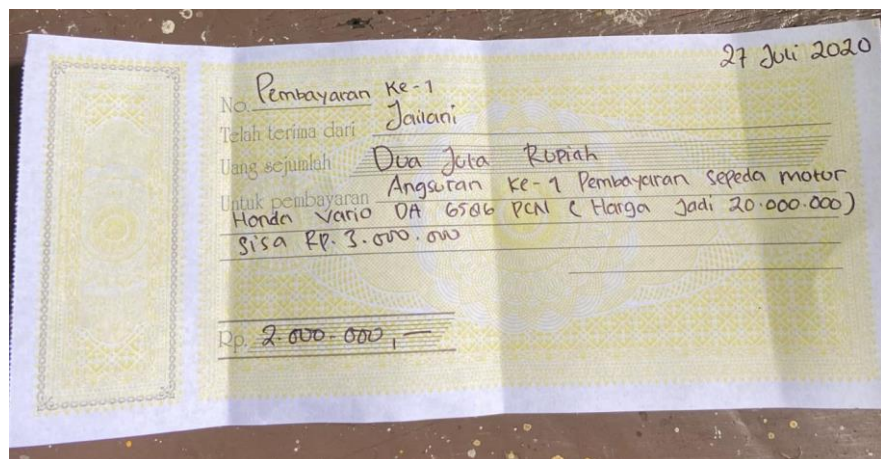 27 Juli 2020
No. Pembayaran Ke-1
Telah terima dari Jailani
Uang sejumlah Dua Juta Rupiah
Untuk pembayaran Angsuran Ke-1 Pembayaran sepeda motor
Honda Vario DA 6506 PCN (Harga Jadi 20.000.000)
Sisa RP. 3.000.000
Rp. 2.000.000,—